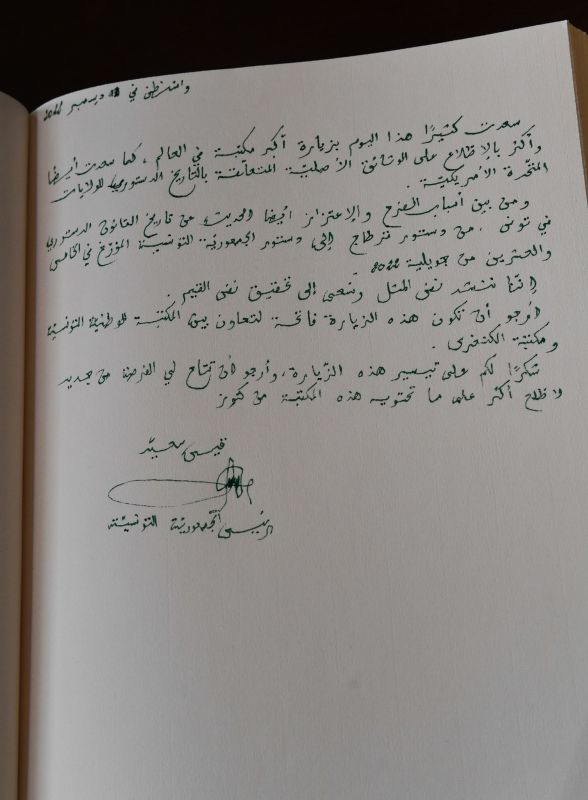 واشنطن في 13 ديسمبر 2022
سعدت كثيرًا هذا اليوم بزيارة أكبر مكتبة في العالم، كما سعدت أيضًا
وأكثر بالإطلاع على الوثائق الأصلية المتعلقة بالتاريخ الدستوري للولايات
المتحدة الأمريكية.
ومن بين أسباب الفرح والاعتزاز أيضا الحديث عن تاريخ القانون الدستوري
في تونس، من دستور قرطاج إلى دستور الجمهورية التونسية المؤرخ في الخامس
والعشرين من جويلية 2022.
إننا ننشد نفس المثل ونسعى إلى تحقيق نفس القيم.
أرجو أن تكون هذه الزيارة فاتحة لتعاون بين المكتبة الوطنية التونسية
ومكتبة الكنغرس.
شكرًا لكم على تيسير هذه الزيارة، وأرجو أن تتاح لي الفرصة من جديد
لاطلاع أكثر على ما تحتويه هذه المكتبة من كنوز
قيس سعيّد
رئيس الجمهورية التونسية